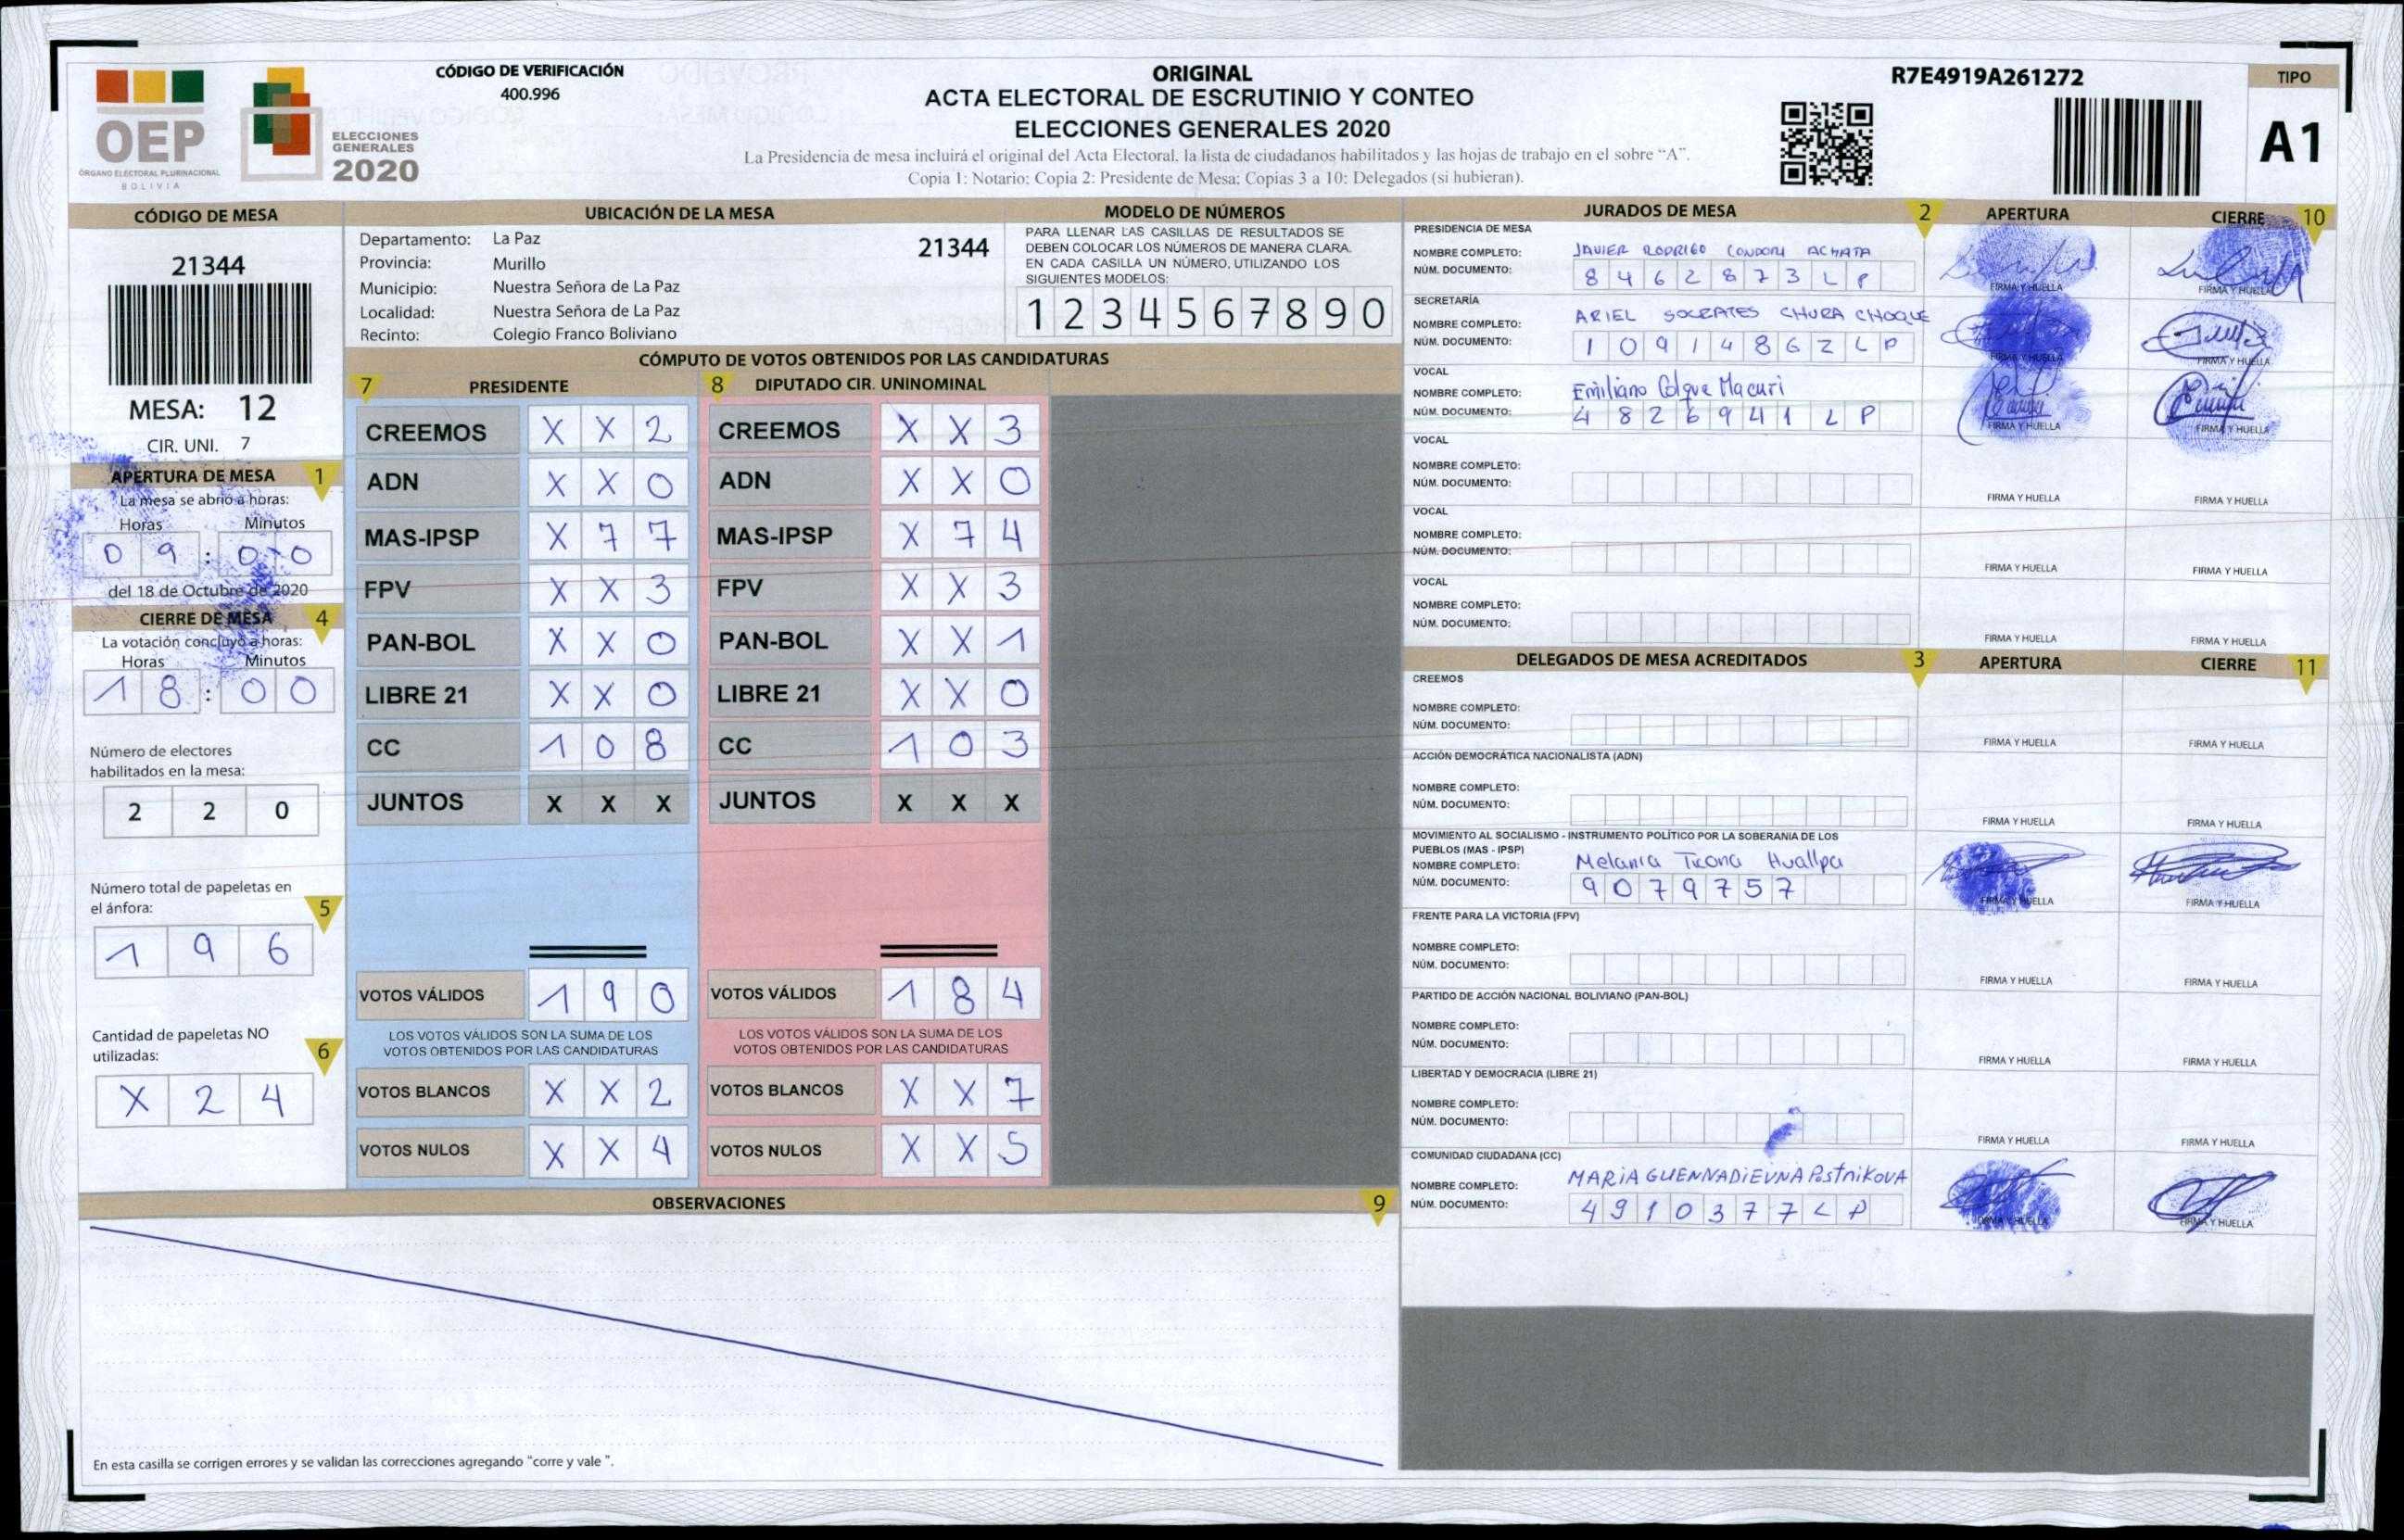 OEP
ÓRGANO ELECTORAL PLURINACIONAL
BOLIVIA
ELECCIONES
GENERALES
2020
CÓDIGO DE VERIFICACIÓN
400.996
ORIGINAL
ACTA ELECTORAL DE ESCRUTINIO Y CONTEO
ELECCIONES GENERALES 2020
La Presidencia de mesa incluirá el original del Acta Electoral, la lista de ciudadanos habilitados y las hojas de trabajo en el sobre “A”.
Copia 1: Notario; Copia 2: Presidente de Mesa; Copias 3 a 10: Delegados (si hubieran).
R7E4919A261272
TIPO
A1
CÓDIGO DE MESA
21344
MESA: 12
CIR. UNI. 7
APERTURA DE MESA 1
La mesa se abrió a horas:
Horas Minutos
0 9 : 0 0
del 18 de Octubre de 2020
CIERRE DE MESA 4
La votación concluyó a horas:
Horas Minutos
1 8 : 0 0
Número de electores
habilitados en la mesa:
2 2 0
Número total de papeletas en
el ánfora: 5
1 9 6
Cantidad de papeletas NO
utilizadas: 6
X 2 4
UBICACIÓN DE LA MESA
Departamento: La Paz 21344
Provincia: Murillo
Municipio: Nuestra Señora de La Paz
Localidad: Nuestra Señora de La Paz
Recinto: Colegio Franco Boliviano
MODELO DE NÚMEROS
PARA LLENAR LAS CASILLAS DE RESULTADOS SE
DEBEN COLOCAR LOS NÚMEROS DE MANERA CLARA.
EN CADA CASILLA UN NÚMERO, UTILIZANDO LOS
SIGUIENTES MODELOS:
1 2 3 4 5 6 7 8 9 0
CÓMPUTO DE VOTOS OBTENIDOS POR LAS CANDIDATURAS
7 PRESIDENTE
CREEMOS X X 2
ADN X X 0
MAS-IPSP X 7 7
FPV X X 3
PAN-BOL X X 0
LIBRE 21 X X 0
CC 1 0 8
JUNTOS X X X
VOTOS VÁLIDOS 1 9 0
LOS VOTOS VÁLIDOS SON LA SUMA DE LOS
VOTOS OBTENIDOS POR LAS CANDIDATURAS
VOTOS BLANCOS X X 2
VOTOS NULOS X X 4
8 DIPUTADO CIR. UNINOMINAL
CREEMOS X X 3
ADN X X 0
MAS-IPSP X 7 4
FPV X X 3
PAN-BOL X X 1
LIBRE 21 X X 0
CC 1 0 3
JUNTOS X X X
VOTOS VÁLIDOS 1 8 4
LOS VOTOS VÁLIDOS SON LA SUMA DE LOS
VOTOS OBTENIDOS POR LAS CANDIDATURAS
VOTOS BLANCOS X X 7
VOTOS NULOS X X 5
OBSERVACIONES 9
En esta casilla se corrigen errores y se validan las correcciones agregando “corre y vale ”.
JURADOS DE MESA 2 APERTURA CIERRE 10
PRESIDENCIA DE MESA
NOMBRE COMPLETO: JAVIER RODRIGO CONDORI ACHATA
NÚM. DOCUMENTO: 8 4 6 2 8 7 3 L P
FIRMA Y HUELLA FIRMA Y HUELLA
SECRETARÍA
NOMBRE COMPLETO: ARIEL SOCRATES CHURA CHOQUE
NÚM. DOCUMENTO: 1 0 9 1 4 8 6 2 L P
FIRMA Y HUELLA FIRMA Y HUELLA
VOCAL
NOMBRE COMPLETO: Emiliano Colque Macuri
NÚM. DOCUMENTO: 4 8 2 6 9 4 1 L P
FIRMA Y HUELLA FIRMA Y HUELLA
VOCAL
NOMBRE COMPLETO:
NÚM. DOCUMENTO:
FIRMA Y HUELLA FIRMA Y HUELLA
VOCAL
NOMBRE COMPLETO:
NÚM. DOCUMENTO:
FIRMA Y HUELLA FIRMA Y HUELLA
VOCAL
NOMBRE COMPLETO:
NÚM. DOCUMENTO:
FIRMA Y HUELLA FIRMA Y HUELLA
DELEGADOS DE MESA ACREDITADOS 3 APERTURA CIERRE 11
CREEMOS
NOMBRE COMPLETO:
NÚM. DOCUMENTO:
FIRMA Y HUELLA FIRMA Y HUELLA
ACCIÓN DEMOCRÁTICA NACIONALISTA (ADN)
NOMBRE COMPLETO:
NÚM. DOCUMENTO:
FIRMA Y HUELLA FIRMA Y HUELLA
MOVIMIENTO AL SOCIALISMO - INSTRUMENTO POLÍTICO POR LA SOBERANIA DE LOS
PUEBLOS (MAS - IPSP)
NOMBRE COMPLETO: Melania Ticona Huallpa
NÚM. DOCUMENTO: 9 0 7 9 7 5 7
FIRMA Y HUELLA FIRMA Y HUELLA
FRENTE PARA LA VICTORIA (FPV)
NOMBRE COMPLETO:
NÚM. DOCUMENTO:
FIRMA Y HUELLA FIRMA Y HUELLA
PARTIDO DE ACCIÓN NACIONAL BOLIVIANO (PAN-BOL)
NOMBRE COMPLETO:
NÚM. DOCUMENTO:
FIRMA Y HUELLA FIRMA Y HUELLA
LIBERTAD Y DEMOCRACIA (LIBRE 21)
NOMBRE COMPLETO:
NÚM. DOCUMENTO:
FIRMA Y HUELLA FIRMA Y HUELLA
COMUNIDAD CIUDADANA (CC)
NOMBRE COMPLETO: MARIA GUENNADIEVNA PostnikovA
NÚM. DOCUMENTO: 4 9 1 0 3 7 7 L P
FIRMA Y HUELLA FIRMA Y HUELLA